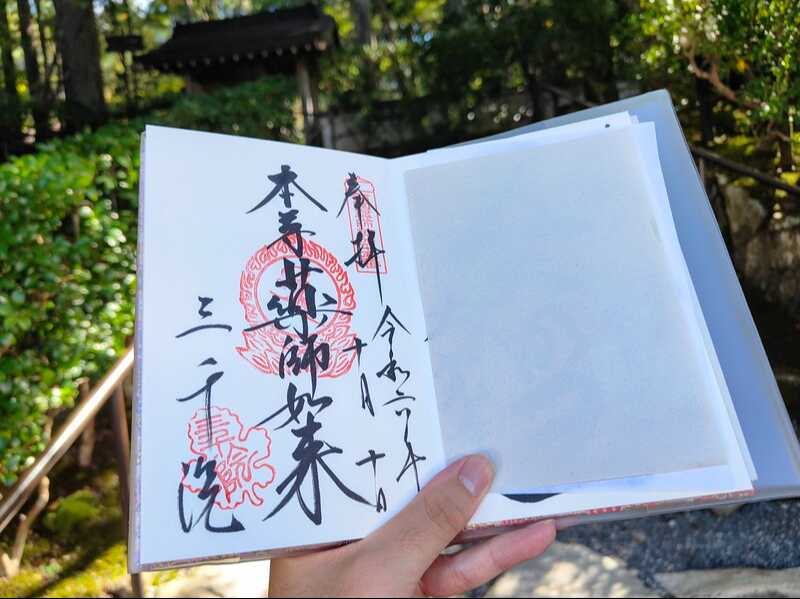 奉拝
令和六年
十月十日
本尊薬師如来
三千院